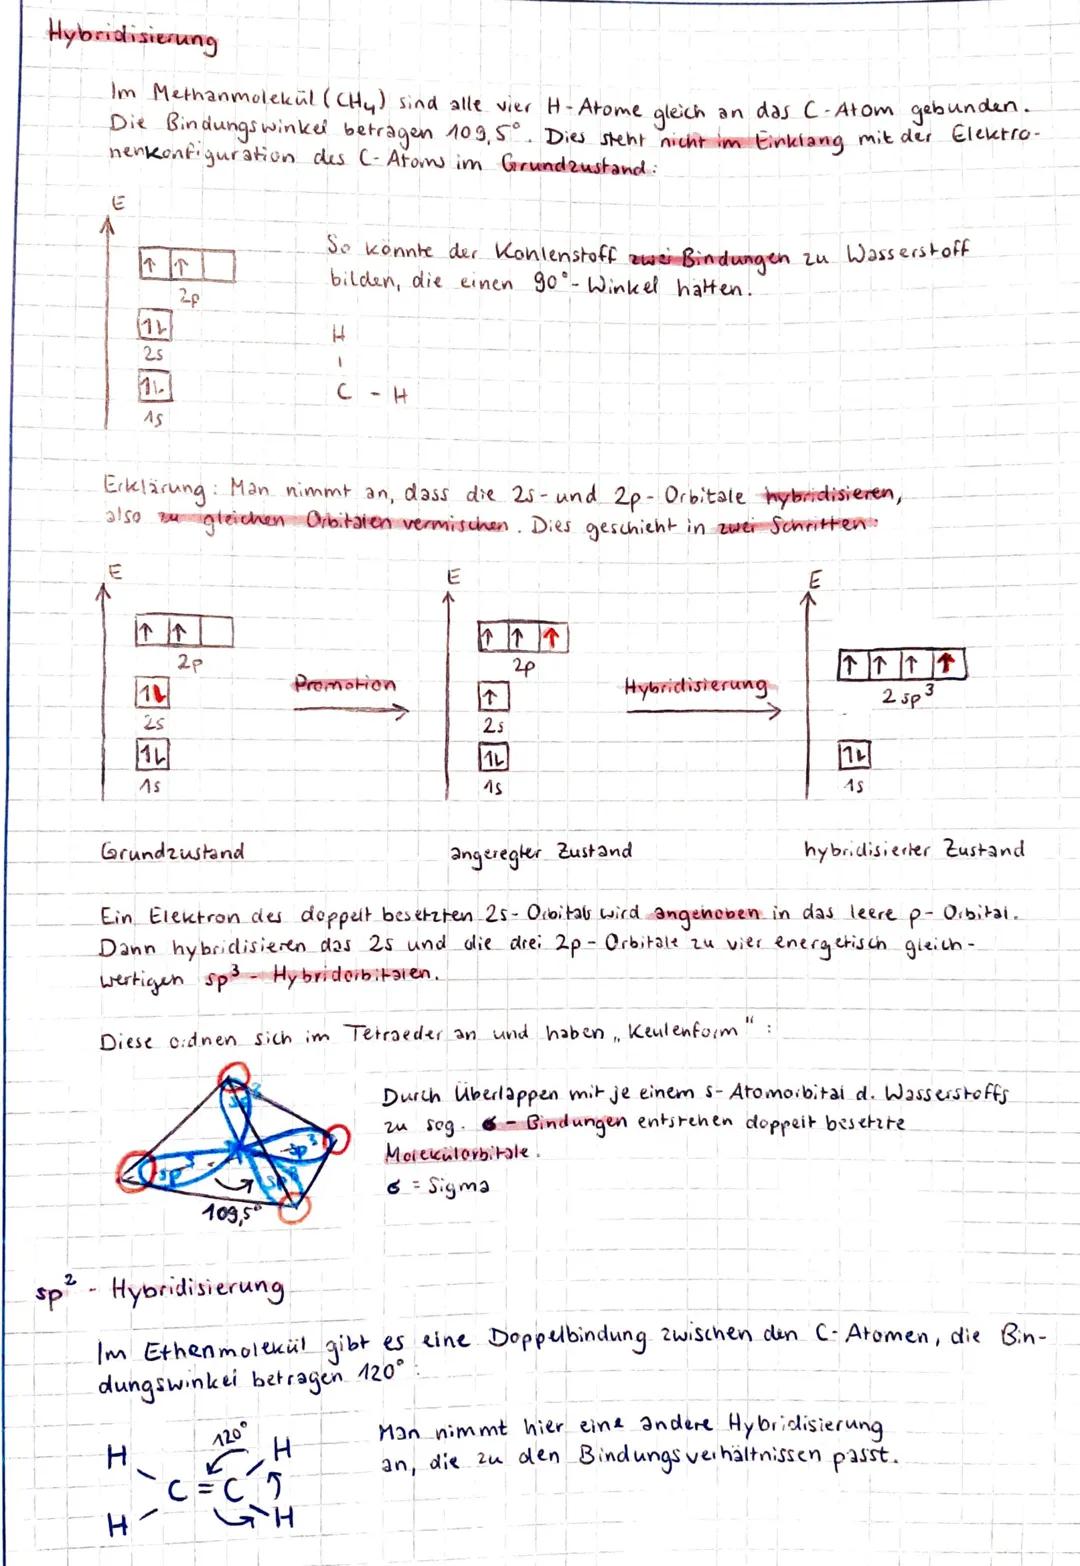 Hybridisierung
Im Methanmolekül (CH4) sind alle vier H-Atome gleich an das C-Atom gebunden.
Die Bindungswinkel betragen 109,5°. Dies steht nicht im Einklang mit der Elektro-
nenkonfiguration des C-Atoms im Grundzustand:
E
↑ ↑
2p
1↓
2s
1↓
1s
So könnte der Kohlenstoff zwei Bindungen zu Wasserstoff
bilden, die einen 90°-Winkel hätten.
H
|
C - H
Erklärung: Man nimmt an, dass die 2s- und 2p-Orbitale hybridisieren,
also zu gleichen Orbitalen vermischen. Dies geschieht in zwei Schritten:
E E E
2p 2p 2sp³
Promotion Hybridisierung
2s 2s
1s 1s 1s
Grundzustand angeregter Zustand hybridisierter Zustand
Ein Elektron des doppelt besetzten 2s-Orbitals wird angehoben in das leere p-Orbital.
Dann hybridisieren das 2s und die drei 2p-Orbitale zu vier energetisch gleich-
wertigen sp³-Hybridorbitalen.
Diese ordnen sich im Tetraeder an und haben „Keulenform":
sp³
sp³
sp³
sp³
109,5°
Durch Überlappen mit je einem s-Atomorbital d. Wasserstoffs
zu sog. σ-Bindungen entstehen doppelt besetzte
Molekülorbitale.
σ = Sigma
sp² - Hybridisierung
Im Ethenmolekül gibt es eine Doppelbindung zwischen den C-Atomen, die Bin-
dungswinkel betragen 120°:
120°
H H
C = C
H H
Man nimmt hier eine andere Hybridisierung
an, die zu den Bindungsverhältnissen passt.